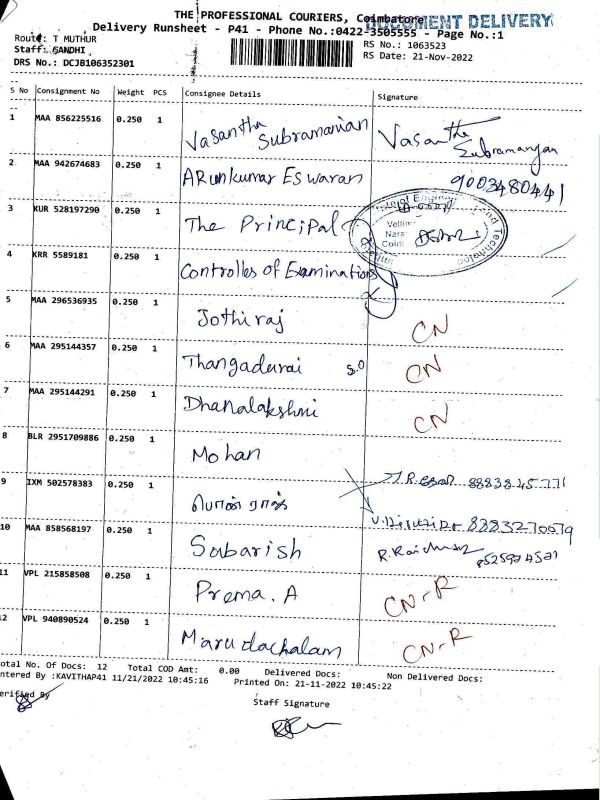 THE PROFESSIONAL COURIERS, Coimbatore
DOCUMENT DELIVERY
Delivery Runsheet - P41 - Phone No.:0422-3505555 - Page No.:1
Route: T MUTHUR
Staff: GANDHI
DRS No.: DCJB106352301
RS No.: 1063523
RS Date: 21-Nov-2022
S No Consignment No Weight PCS Consignee Details Signature
1 MAA 856225516 0.250 1 Vasantha Subramanian Vasantha Subramanyan
2 MAA 942674683 0.250 1 ARunkumar Eswaran 9003480441
3 KUR 528197290 0.250 1 The Principal
4 KRR 5589181 0.250 1 Controlles of Examinations
5 MAA 296536935 0.250 1 Jothiraj CN
6 MAA 295144357 0.250 1 Thangadurai S.O CN
7 MAA 295144291 0.250 1 Dhanalakshmi CN
8 BLR 2951709886 0.250 1 Mohan
9 IXM 502578383 0.250 1 பொன் ராஜ் 8883845771
10 MAA 858568197 0.250 1 Sabarish 8883270679
11 VPL 215858508 0.250 1 Prema. A CN-R
12 VPL 940890524 0.250 1 Marudachalam CN-R
otal No. Of Docs: 12 Total COD Amt: 0.00 Delivered Docs: Non Delivered Docs:
ntered By :KAVITHAP41 11/21/2022 10:45:16 Printed On: 21-11-2022 10:45:22
erified By
Staff Signature